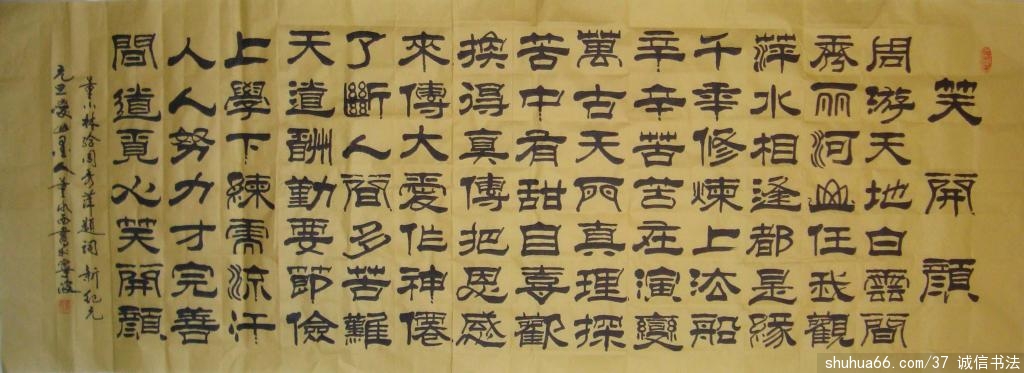 笑開顔
周游天地白雲間
秀丽河山任我觀
萍水相逢都是緣
千年修煉上法船
辛辛苦苦在演變
萬古天雨真理探
苦中有甜自喜歡
换得真傳把恩感
來傳大愛作神僊
了斷人間多苦難
天道酬勤要節儉
上學下練需流汗
人人努力才完善
間道覓心笑開顔
董小林給周秀萍題詞新紀元
元旦愛山里人董永西書於寧波
shuhua66.com/37 诚信书法